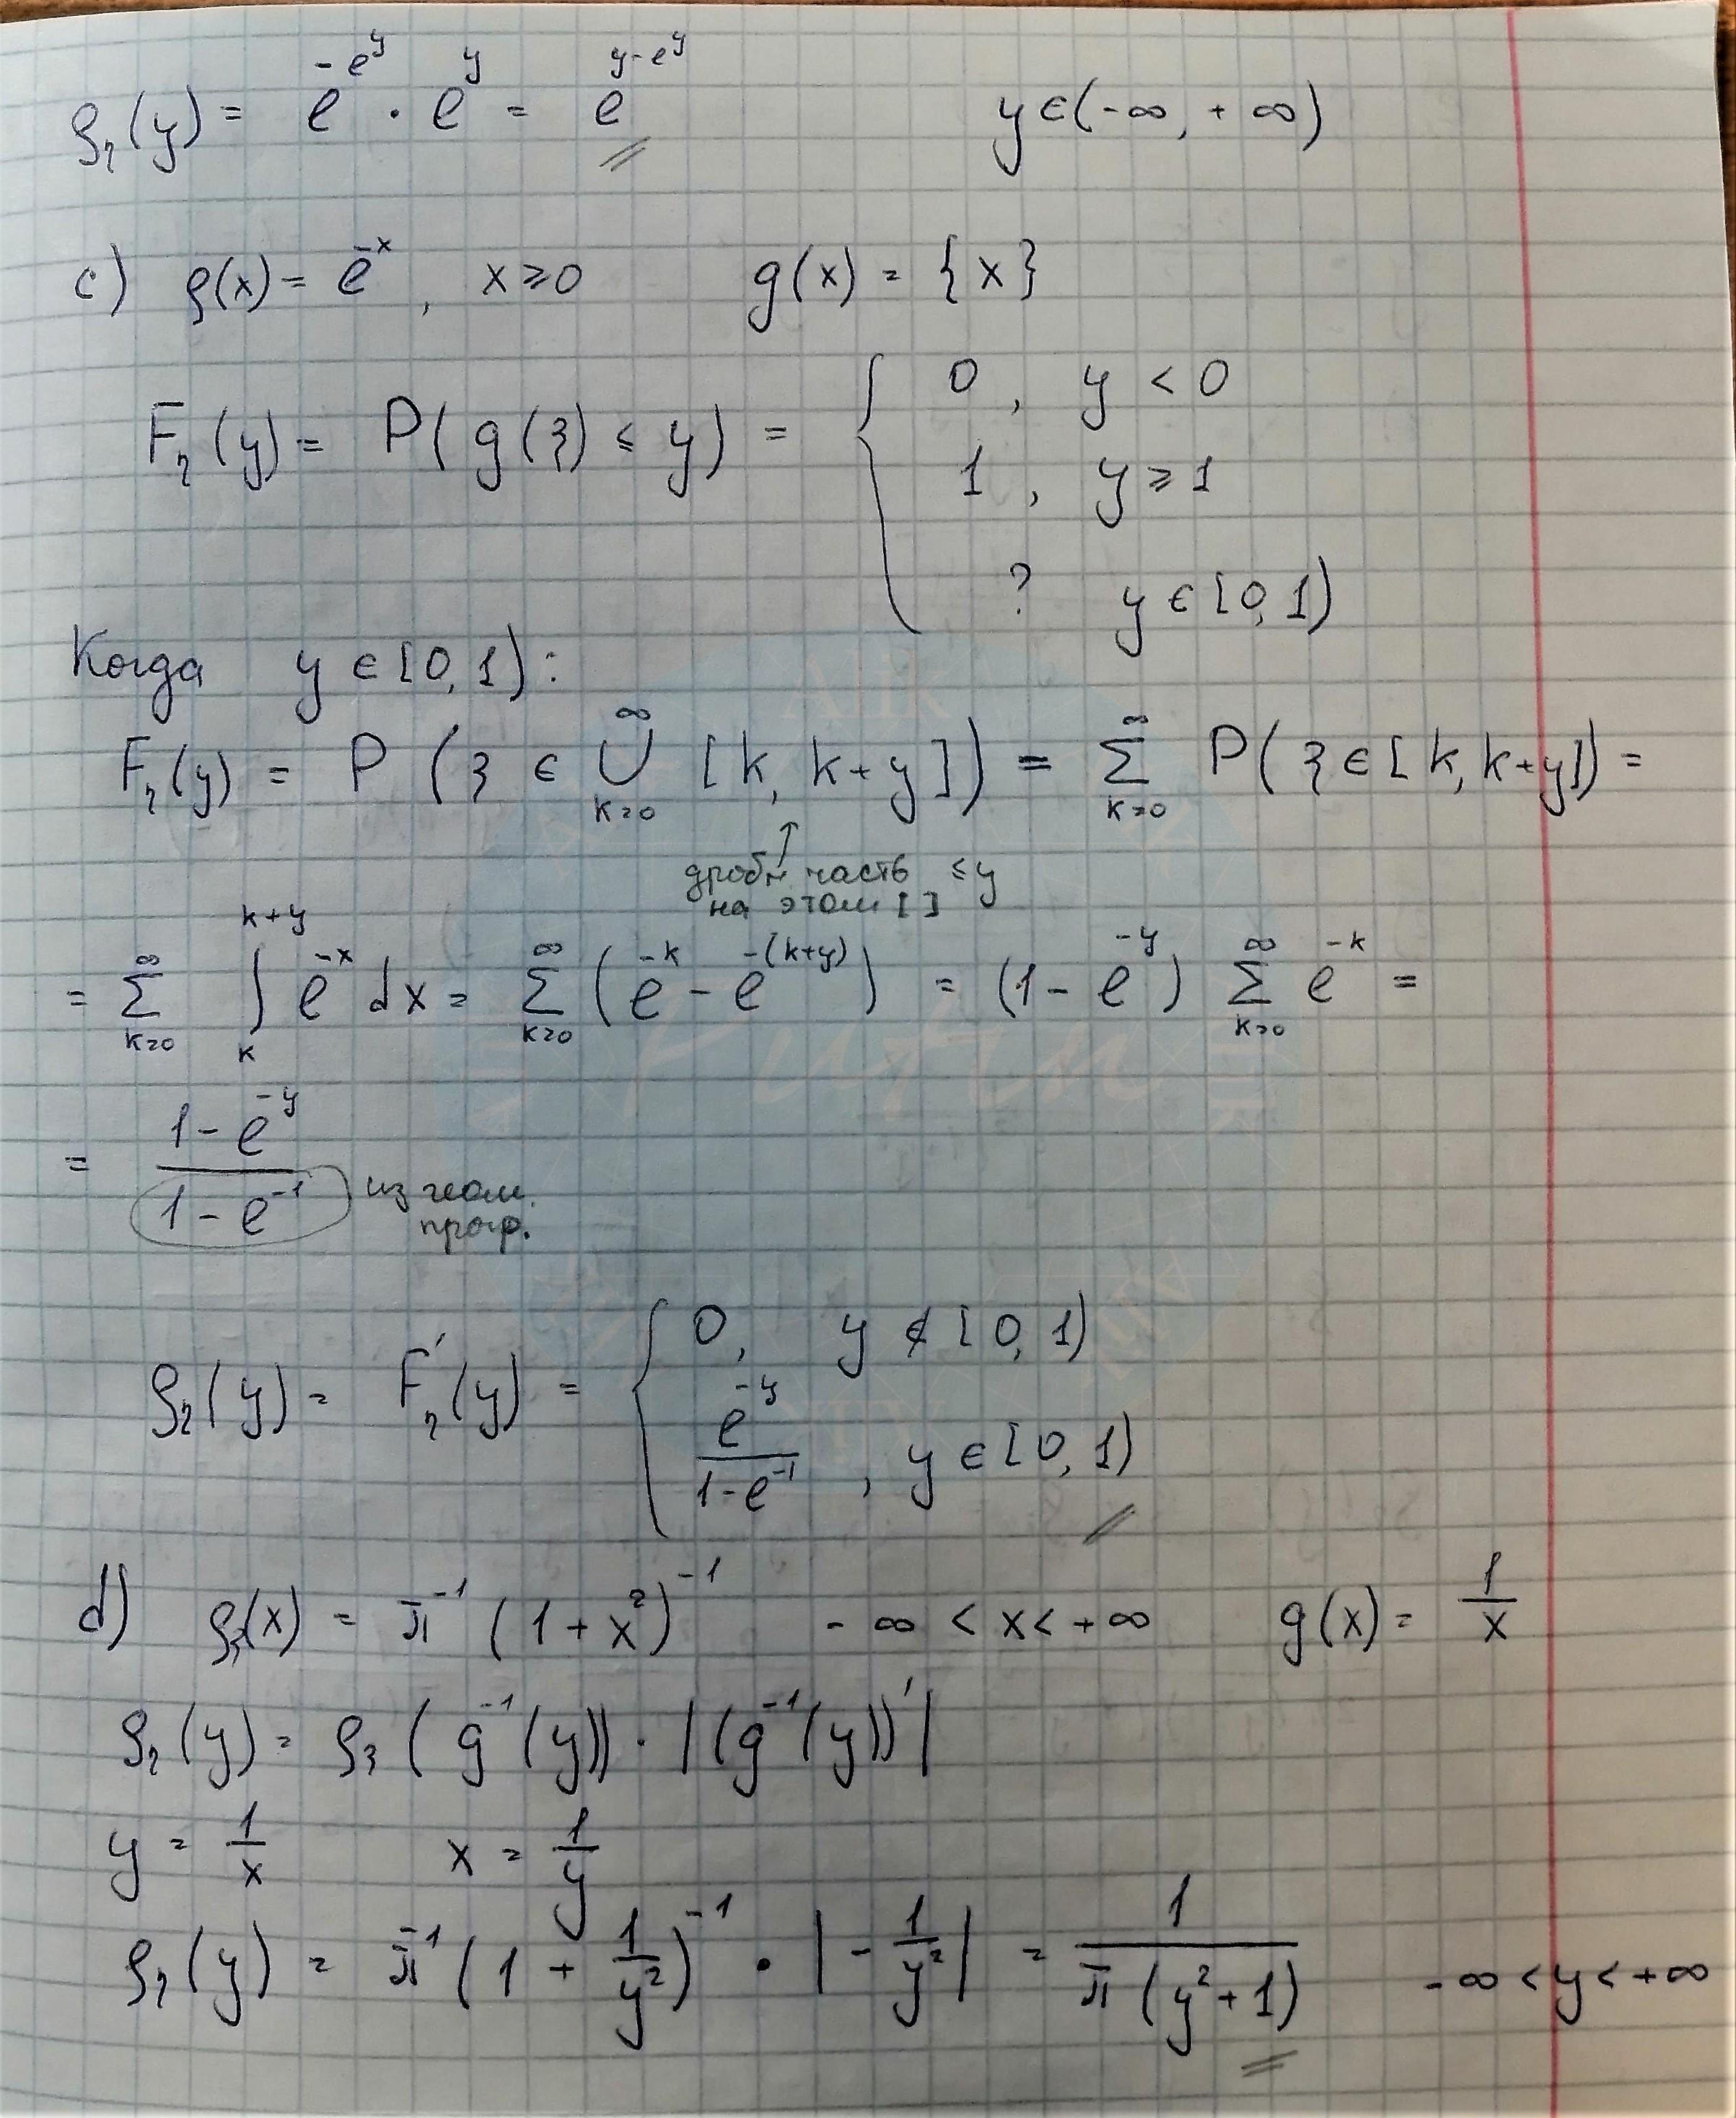 ρ_η(y) = e^{-e^y} · e^y = e^{y-e^y}    y ∈ (-∞, +∞)
c) ρ(x) = e^{-x}, x ⩾ 0    g(x) = {x}
F_η(y) = P(g(ξ) ≤ y) = { 0, y < 0
1, y ⩾ 1
? y ∈ [0, 1)
Когда y ∈ [0, 1):
F_η(y) = P(ξ ∈ ⋃_{k=0}^{∞} [k, k+y]) = Σ_{k=0}^{∞} P(ξ ∈ [k, k+y]) =
↑
дробн часть ≤ y
на этом [ ]
= Σ_{k=0}^{∞} ∫_{k}^{k+y} e^{-x} dx = Σ_{k=0}^{∞} (e^{-k} - e^{-(k+y)}) = (1 - e^{-y}) Σ_{k=0}^{∞} e^{-k} =
= \frac{1 - e^{-y}}{1 - e^{-1}} из геом.
прогр.
ρ_η(y) = F'_η(y) = { 0, y ∉ [0, 1)
\frac{e^{-y}}{1-e^{-1}}, y ∈ [0, 1)
d) ρ_ξ(x) = π^{-1} (1 + x²)^{-1}    -∞ < x < +∞    g(x) = \frac{1}{x}
ρ_η(y) = ρ_ξ(g^{-1}(y)) · |(g^{-1}(y))'|
y = \frac{1}{x}    x = \frac{1}{y}
ρ_η(y) = π^{-1} (1 + \frac{1}{y²})^{-1} · |-\frac{1}{y²}| = \frac{1}{π(y²+1)}    -∞ < y < +∞